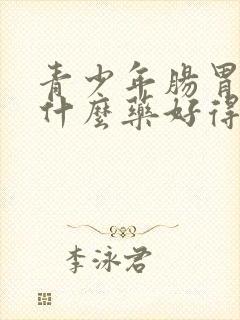 青少年腸胃
什麼藥好得
李泳君